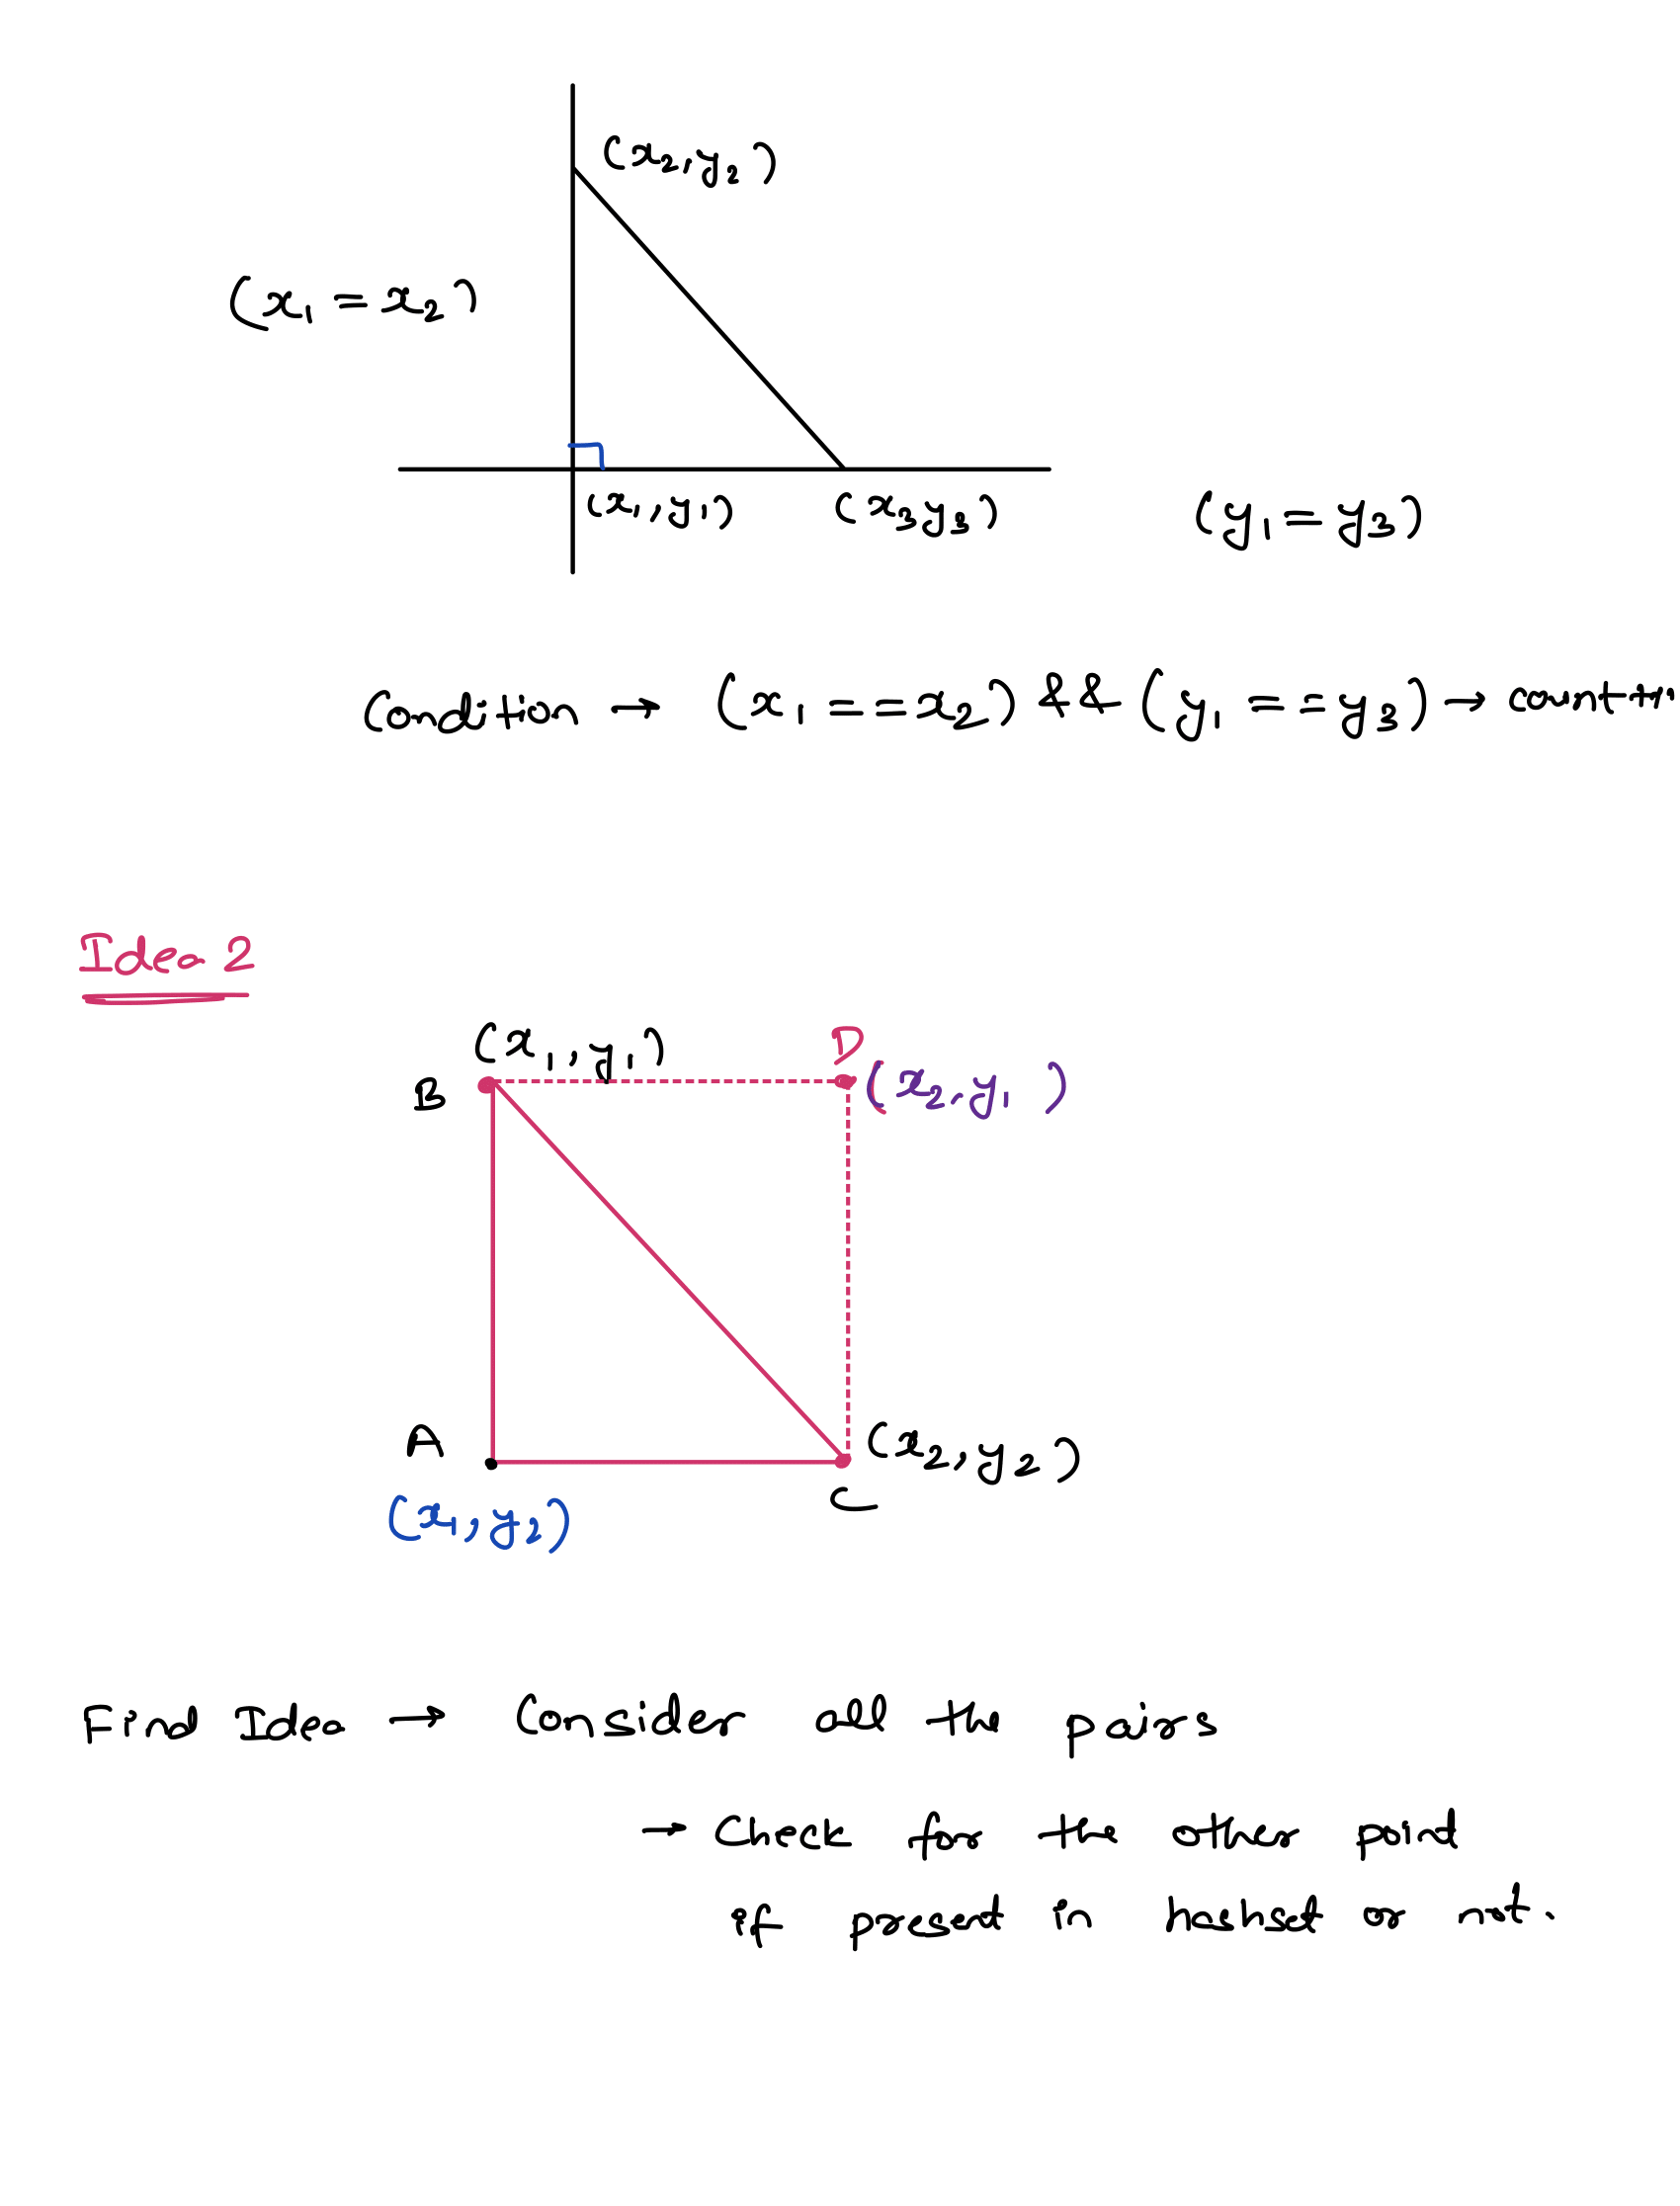 (x₂,y₂)
(x₁ = x₂)
(x₁,y₁) (x₃y₃) (y₁ = y₃)
Condition → (x₁ == x₂) && (y₁ == y₃) → count++
Idea 2
(x₁,y₁) D
B (x₂,y₁)
A (x₂,y₂)
C
(x₁,y₂)
Find Idea → Consider all the pairs
→ Check for the other point
if present in hashset or not.